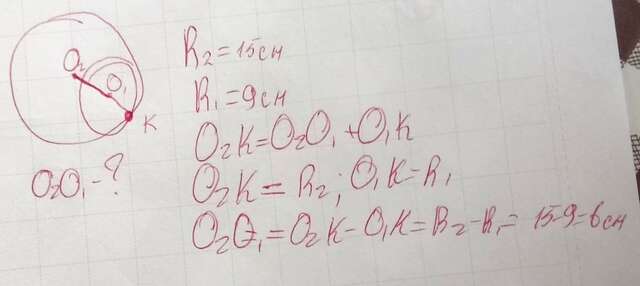 O₂
O₁
K
O₂O₁ - ?
R₂ = 15 см
R₁ = 9 см
O₂K = O₂O₁ + O₁K
O₂K = R₂; O₁K = R₁
O₂O₁ = O₂K - O₁K = R₂ - R₁ = 15 - 9 = 6 см